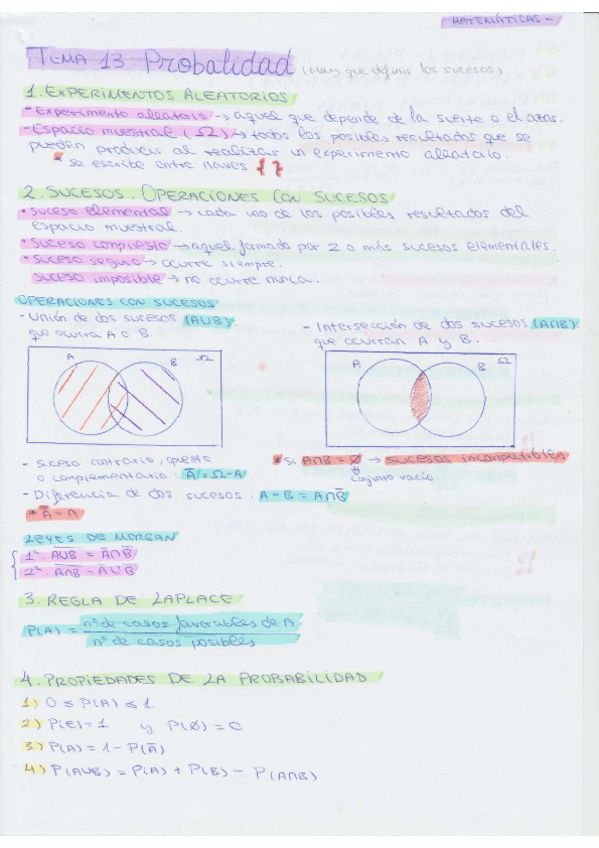 MATEMÁTICAS -
TEMA 13. Probalidad (Hay que definir los sucesos)
1. EXPERIMENTOS ALEATORIOS
- Experimento aleatorio → aquel que depende de la suerte o el azar.
- Espacio muestral (Ω) → todos los posibles resultados que se
pueden producir al realizar un experimento aleatorio.
* se escribe entre llaves { }
2. SUCESOS. OPERACIONES CON SUCESOS
• Suceso elemental → cada uno de los posibles resultados del
espacio muestral.
• Suceso compuesto → aquel formado por 2 o más sucesos elementales.
• Suceso seguro → ocurre siempre.
Suceso imposible → no ocurre nunca.
OPERACIONES CON SUCESOS
- Unión de dos sucesos (A∪B):
que ocurra A o B.
- Intersección de dos sucesos (A∩B):
que ocurran A y B.
A B Ω
A B Ω
- Suceso contrario, opuesto
o complementario: A̅ = Ω - A
* Si A∩B = Ø → sucesos incompatibles
conjunto vacío
- Diferencia de dos sucesos: A - B = A∩B̅
* A̿ = A
LEYES DE MORGAN
1ª. A̅∪̅B̅ = A̅∩B̅
2ª. A̅∩̅B̅ = A̅∪B̅
3. REGLA DE LAPLACE
P(A) = nº de casos favorables de A
nº de casos posibles
4. PROPIEDADES DE LA PROBABILIDAD
1) 0 ≤ P(A) ≤ 1.
2) P(E) = 1 y P(Ø) = 0
3) P(A) = 1 - P(A̅)
4) P(A∪B) = P(A) + P(B) - P(A∩B)